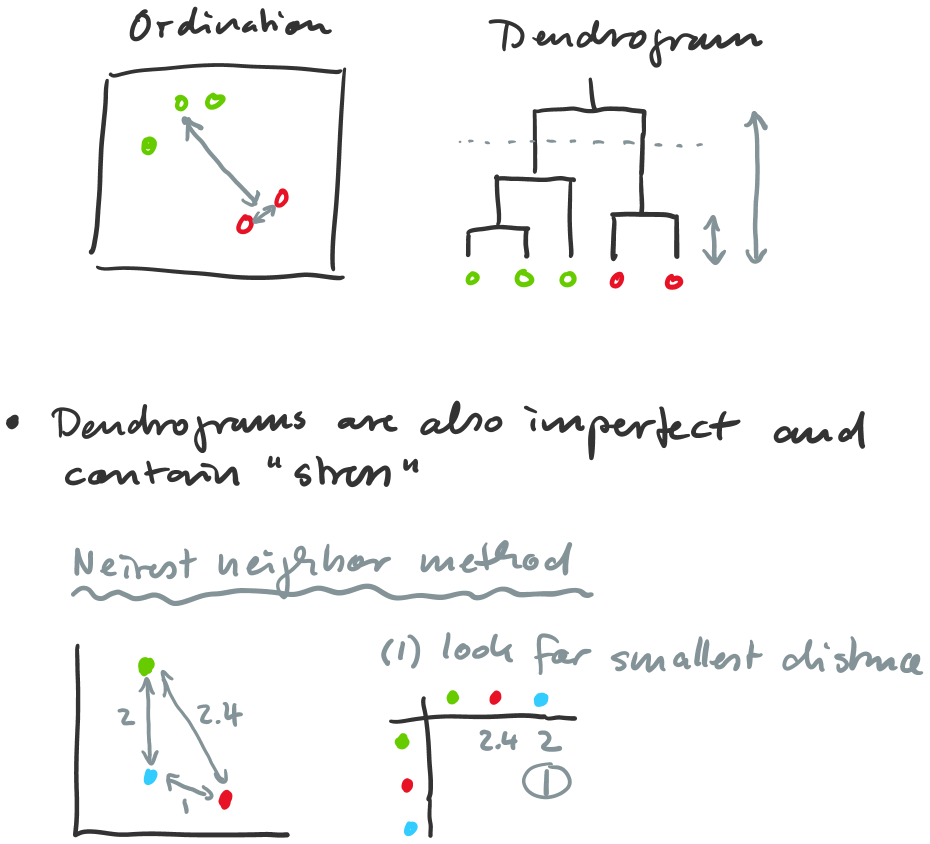 Ordination
Dendrogram
• Dendrograms are also imperfect and
contain "stress"
Neirest neighbor method
(1) look for smallest distance
2
2.4
1
2.4 2
1